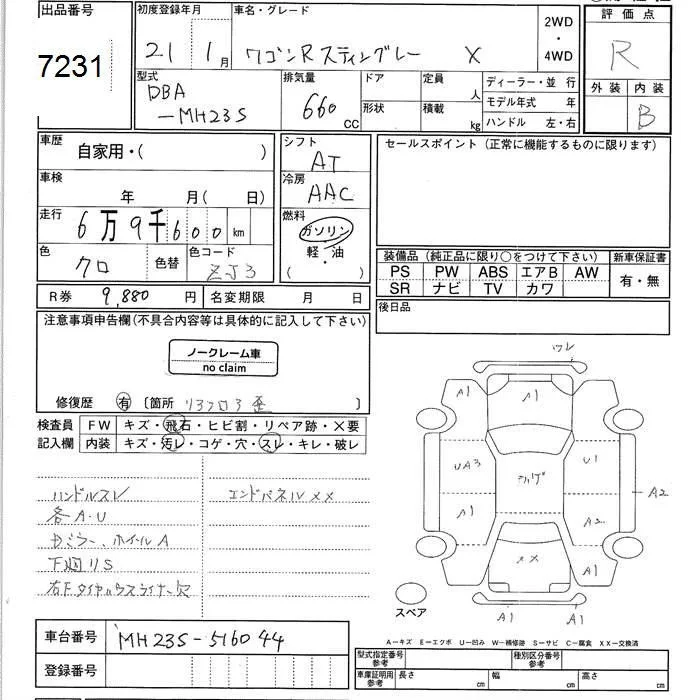 出品番号 初度登録年月 車名・グレード 2WD 評価点
7231 21 1月 ワゴンRスティングレー X ・ R
4WD
型式 排気量 ドア 定員 ディーラー・並行 外装 内装
DBA 660 人 モデル年式 年 B
-MH23S CC 形状 積載 kg ハンドル 左・右
車歴 自家用・( ) シフト AT セールスポイント (正常に機能するものに限ります)
車検 年 月( 日) 冷房 AAC
走行 6万9千600km 燃料 ガソリン・軽・油
( )
色 クロ 色替 色コード ZJ3
装備品 (純正品に限り○をつけて下さい) 新車保証書
PS PW ABS エアB AW 有・無
SR ナビ TV カワ
R券 9,880円 名変期限 月 日 後日品
注意事項申告欄(不具合内容等は具体的に記入して下さい)
ノークレーム車
no claim
修復歴 有 〔箇所 リヌフロア歪 〕
検査員 FW キズ・飛石・ヒビ割・リペア跡・X要
記入欄 内装 キズ・汚レ・コゲ・穴・スレ・キレ・破レ
ハンドルスレ エンドパネルXX
各A・U
Dミラー、ホイールA
下廻りS
右Fタイヤハウスライナー穴
ワレ
A1 A1 A1
UA3 U1
A1 A2 A2
XX
A1 A1
A1
スペア
A-キズ E-エクボ U-凹み W-補修跡 S-サビ C-腐食 XX-交換済
車台番号 MH23S-516044
登録番号
型式指定番号 参考 種別区分番号 参考
車庫証明用 参考 長さ cm 幅 cm 高さ cm